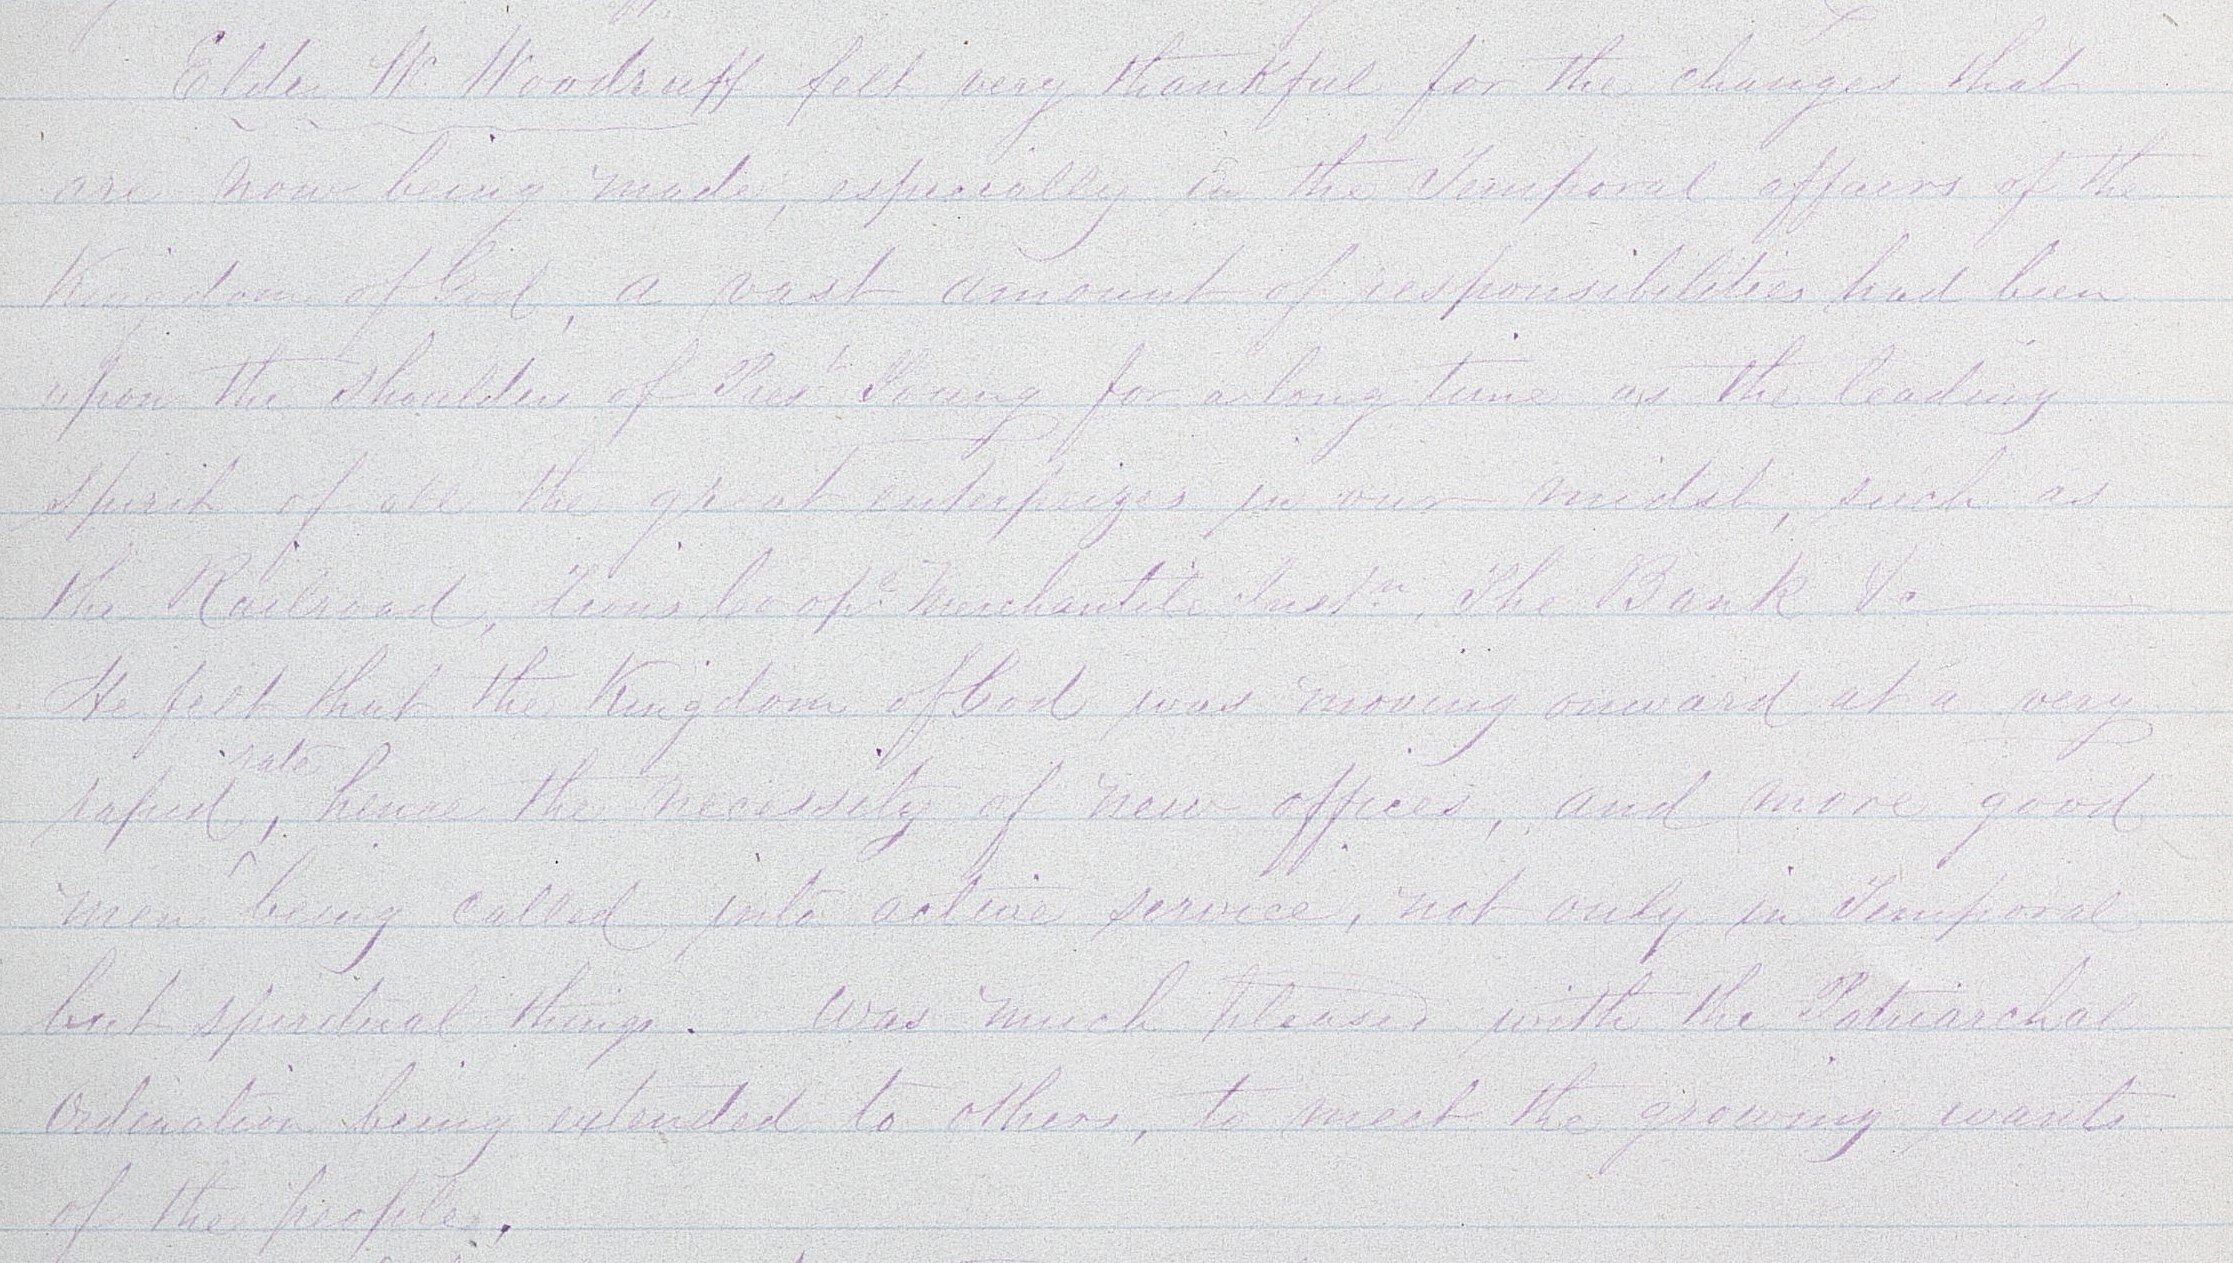 Elder W. Woodruff felt very thankful for the changes that
are now being made, especially in the Temporal affairs of the
Kingdom of God, a vast amount of responsibilities had been
upon the shoulders of Prest Young for a long time as the leading
spirit of all the great enterprizes in our midst, such as
the Railroad, Zions Co ope Merchantile Instn, The Bank &c
He felt that the Kingdom of God was moving onward at a very
rapid rate, hence the necessity of new offices, and more good
men being called into active service, not only in Temporal
but spiritual things. Was much pleased with the Patriarchal
Ordination being extended to others, to meet the growing wants
of the people.